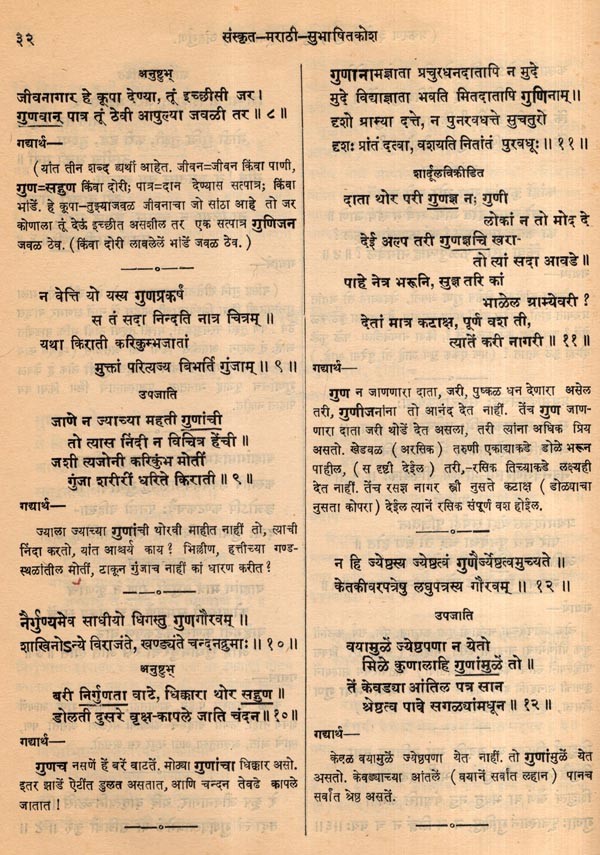 ३२
संस्कृत–मराठी–सुभाषितकोश
अनुष्टुभ्
जीवनागार हे कूपा देण्या, तूं इच्छीसी जर।
गुणवान् पात्र तूं ठेवी आपुल्या जवळी तर॥८॥
गद्यार्थ—
(यांत तीन शब्द द्यर्थी आहेत. जीवन=जीवन किंवा पाणी,
गुण=सद्गुण किंवा दोरी; पात्र=दान देण्यास सत्पात्र; किंवा
भांडें. हे कूपा–तुझ्याजवळ जीवनाचा जो सांठा आहे तो जर
कोणाला तूं देऊं इच्छीत असशील तर एक सत्पात्र गुणिजन
जवळ ठेव. (किंवा दोरी लाबलेलें भांडें जवळ ठेव.)
न वेत्ति यो यस्य गुणप्रकर्षं
स तं सदा निन्दति नात्र चित्रम्॥
यथा किराती करिकुम्भजातां
मुक्तां परित्यज्य विभर्ति गुंजाम्॥९॥
उपजाति
जाणे न ज्याच्या महती गुणांची
तो त्यास निंदी न विचित्र हेंची॥
जशी त्यजोनी करिकुंभ मोतीं
गुंजा शरीरीं धरिते किराती॥९॥
गद्यार्थ—
ज्याला ज्याच्या गुणांची थोरवी माहीत नाहीं तो, त्याची
निंदा करतो, यांत आश्चर्य काय? भिल्लीण, हत्तीच्या गण्ड-
स्थळांतील मोतीं, टाकून गुंजाच नाहीं कां धारण करीत?
नैर्गुण्यमेव साधीयो धिगस्तु गुणगौरवम्॥
शाखिनोऽन्ये विराजंते, खण्ड्यंते चन्दनद्रुमाः॥१०॥
अनुष्टुभ्
बरी निर्गुणता वाटे, धिक्कारा थोर सद्गुण॥
डोलती दुसरे वृक्ष–कापले जाति चंदन॥१०॥
गद्यार्थ—
गुणच नसणें हें बरें वाटतें. मोठ्या गुणांचा धिक्कार असो.
इतर झाडें ऐटींत डुलत असतात, आणि चन्दन तेवढे कापले
जातात!
गुणानामज्ञाता प्रचुरधनदातापि न मुदे
मुदे विद्याज्ञाता भवति मितदातापि गुणिनाम्॥
दृशो ग्राम्या दत्ते, न पुनरवधत्ते सुचतुरो
दृशः प्रांतं दत्वा, वशयति नितांतं पुरवधूः॥११॥
शार्दूलविक्रीडित
दाता थोर परी गुणज्ञ न; गुणी
लोकां न तो मोद दे
देई अल्प तरी गुणज्ञचि खरा-
तो त्यां सदा आवडे॥
पाहे नेत्र भरूनि, सुज्ञ तरि कां
भाळेल ग्राम्येवरी?
देतां मात्र कटाक्ष, पूर्ण वश ती,
त्यातें करी नागरी॥११॥
गद्यार्थ—
गुण न जाणणारा दाता, जरी, पुष्कळ धन देणारा असेल
तरी, गुणीजनांना तो आनंद देत नाहीं. तेंच गुण जाण-
णारा दाता जरी थोडें देत असला, तरी त्यांना अधिक प्रिय
असतो. खेडवळ (अरसिक) तरुणी एकाद्याकडे डोळे भरून
पाहील, (स दृष्टी देईल) तरी,–रसिक तिच्याकडे लक्ष्यही
देत नाहीं. तेंच रसज्ञ नागर स्त्री नुसते कटाक्ष (डोळ्याचा
नुसता कोपरा) देईल त्यानें रसिक संपूर्ण वश होईल.
न हि ज्येष्ठस्य ज्येष्ठत्वं गुणैर्ज्येष्ठत्वमुच्यते॥
केतकीवरपत्रेषु लघुपत्रस्य गौरवम्॥१२॥
उपजाति
वयामुळें ज्येष्ठपणा न येतो
मिळे कुणालाहि गुणांमुळें तो॥
तें केवड्या आंतिल पत्र सान
श्रेष्ठत्व पावे सगळ्यांमधून॥१२॥
गद्यार्थ—
केवळ वयामुळें ज्येष्ठपणा येत नाहीं. तो गुणांमुळें येत
असतो. केवड्याच्या आंतलें (वयानें सर्वांत लहान) पानच
सर्वांत श्रेष्ठ असतें.